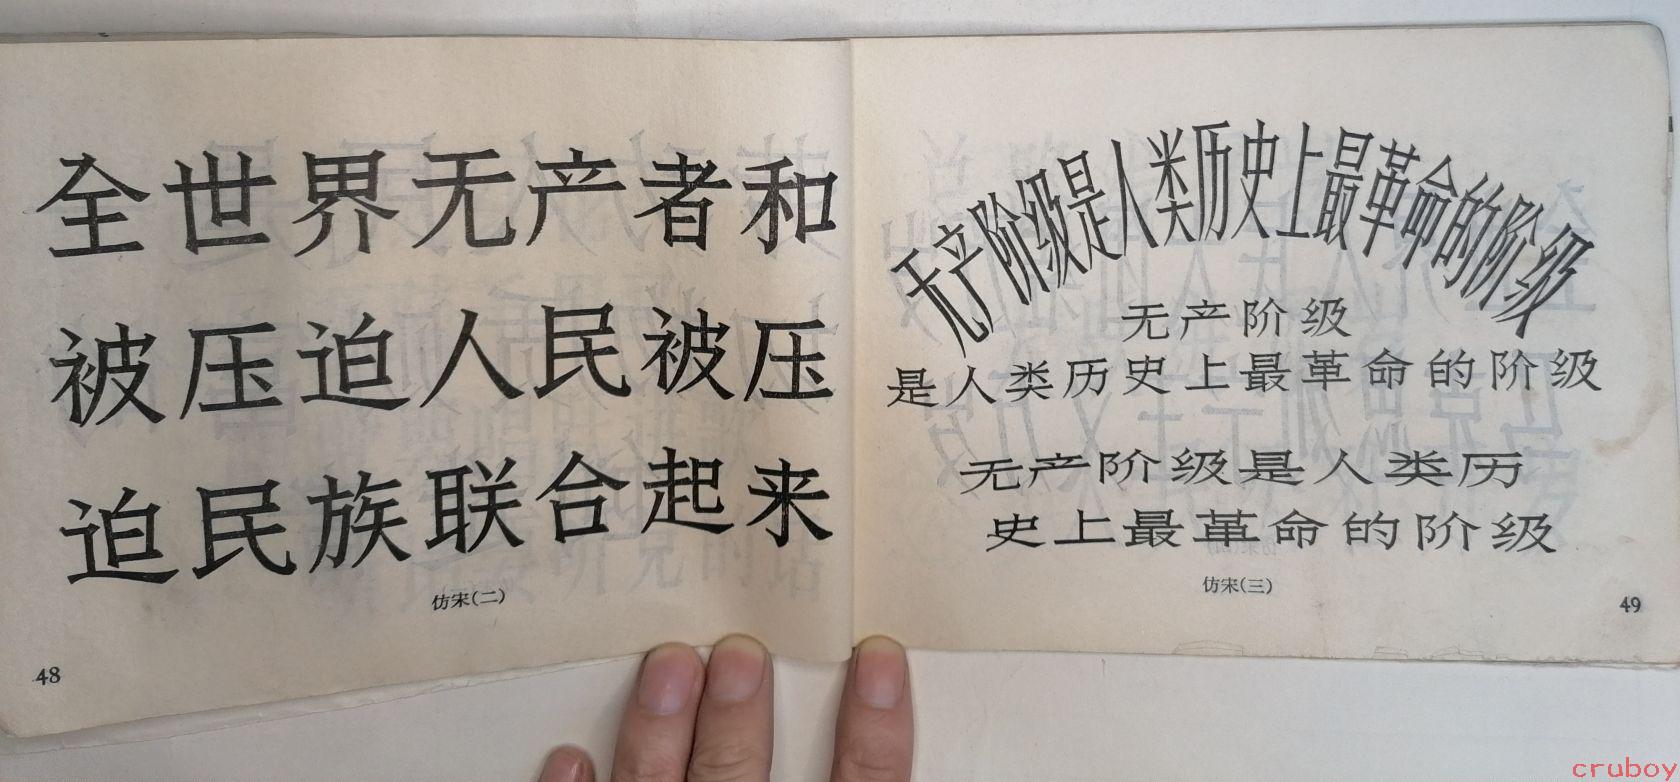 全世界无产者和
被压迫人民被压
迫民族联合起来
仿宋(二)
48
无产阶级是人类历史上最革命的阶级
无产阶级
是人类历史上最革命的阶级
无产阶级是人类历
史上最革命的阶级
仿宋(三)
49
cruboy